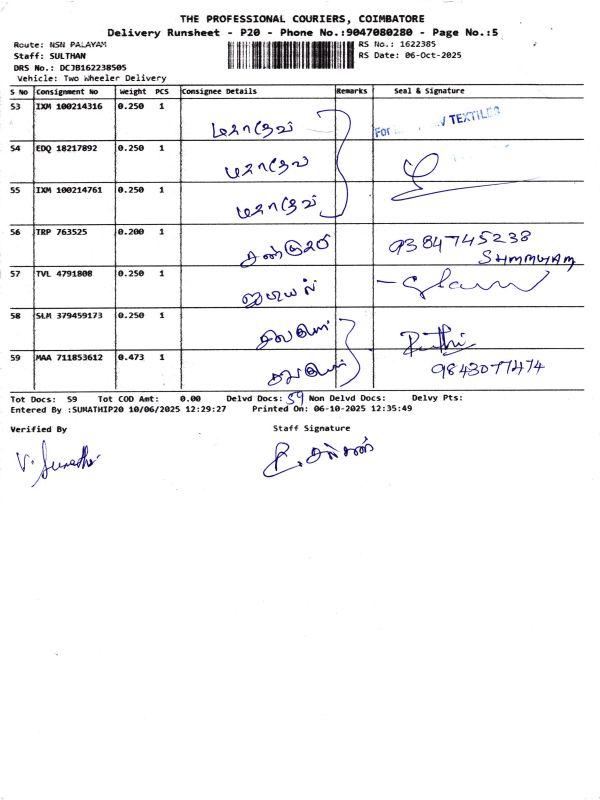 THE PROFESSIONAL COURIERS, COIMBATORE
Delivery Runsheet - P20 - Phone No.:9047080280 - Page No.:5
Route: NSN PALAYAM RS No.: 1622385
Staff: SULTHAN RS Date: 06-Oct-2025
DRS No.: DCJB162238505
Vehicle: Two Wheeler Delivery
S No Consignment No Weight PCS Consignee Details Remarks Seal & Signature
53 IXM 100214316 0.250 1 மகாதேவ் For TEXTILES
54 EDQ 18217892 0.250 1 மகாதேவ்
55 IXM 100214761 0.250 1 மகாதேவ்
56 TRP 763525 0.200 1 9384745238
SHMMUGAM
57 TVL 4791808 0.250 1
58 SLM 379459173 0.250 1
59 MAA 711853612 0.473 1 9843077474
Tot Docs: 59 Tot COD Amt: 0.00 Delvd Docs: 59 Non Delvd Docs: Delvy Pts:
Entered By :SUMATHIP20 10/06/2025 12:29:27 Printed On: 06-10-2025 12:35:49
Verified By Staff Signature
V. Sumathi